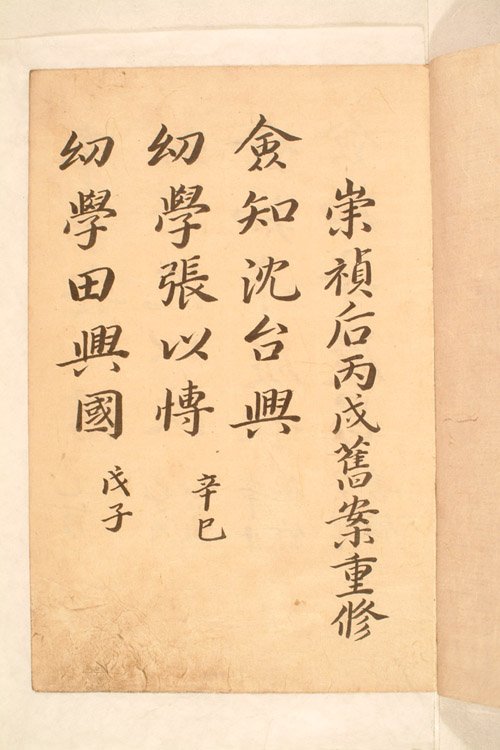 崇禎后丙戌舊案重修
僉知沈台興
幼學張以慱 辛巳
幼學田興國 戊子